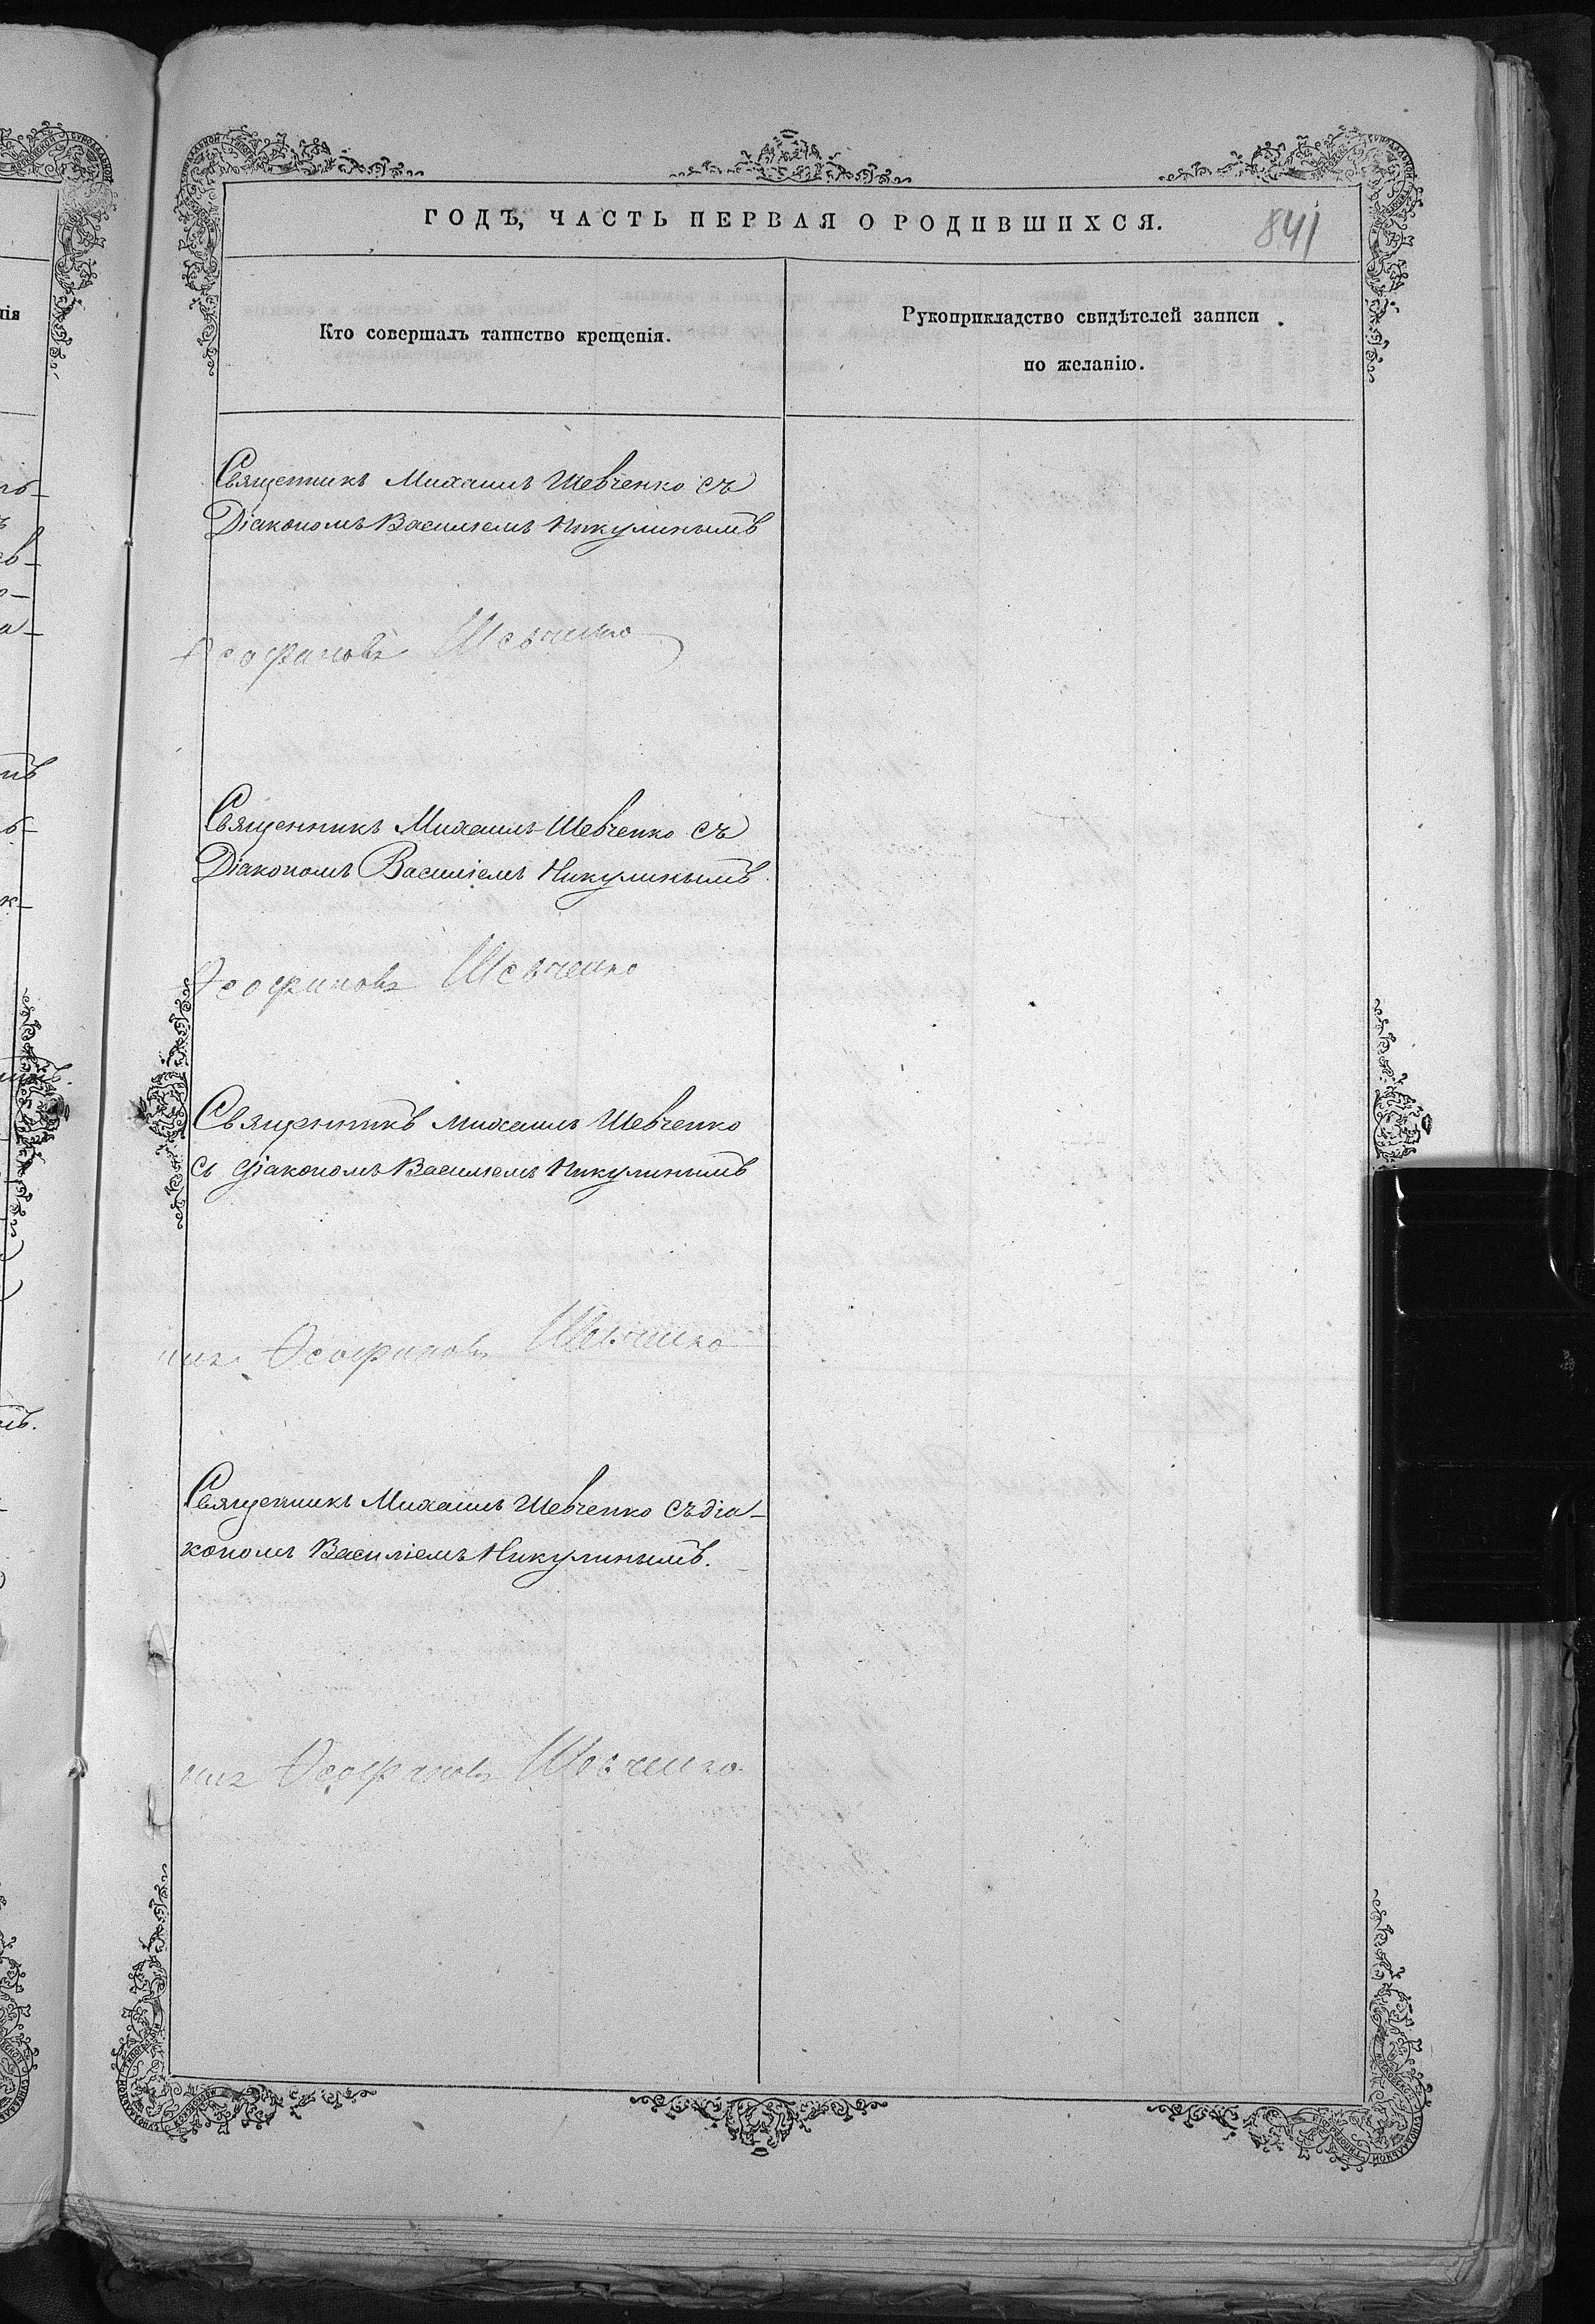 ГОДЪ, ЧАСТЬ ПЕРВАЯ О РОДИВШИХСЯ.
841
Кто совершалъ таинство крещенія.
Рукоприкладство свидѣтелей записи
по желанію.
Священникъ Михаилъ Шевченко съ
Діакономъ Василіемъ Никулинымъ
Ѳеофановъ Шевченко
Священникъ Михаилъ Шевченко съ
Діакономъ Василіемъ Никулинымъ
Ѳеофановъ Шевченко
Священникъ Михаилъ Шевченко
съ Діакономъ Василіемъ Никулинымъ
Ѳеофановъ Шевченко
Священникъ Михаилъ Шевченко съ діа-
кономъ Василіемъ Никулинымъ.
Ѳеофановъ Шевченко